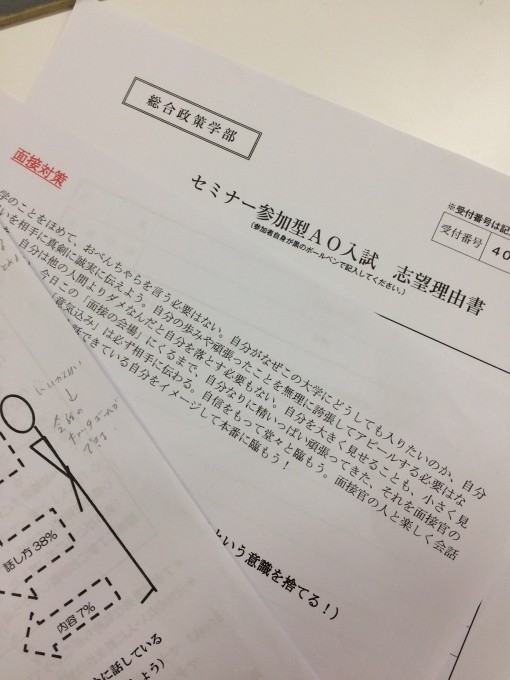 総合政策学部
セミナー参加型AO入試 志望理由書
(参加者自身が黒のボールペンで記入してください。)
※受付番号は記
受付番号 40
面接対策
学のことをほめて、おべんちゃらを言う必要はない。自分がなぜこの大学にどうしても入りたいのか、自分
いを相手に真剣に誠実に伝えよう。自分の歩みや頑張ったことを無理に誇張してアピールする必要はな
自分は他の人間よりダメなんだと自分を落とす必要もない。自分を大きく見せることも、小さく見
今日この「面接の会場」にくるまで、自分なりに精いっぱい頑張ってきた、それを面接官の
「意気込み」は必ず相手に伝わる。自信をもって堂々と臨もう。面接官の人と楽しく会話
できている自分をイメージして本番に臨もう!
という意識を捨てる!)
話し方 38%
内容 7%
に話している
よう)